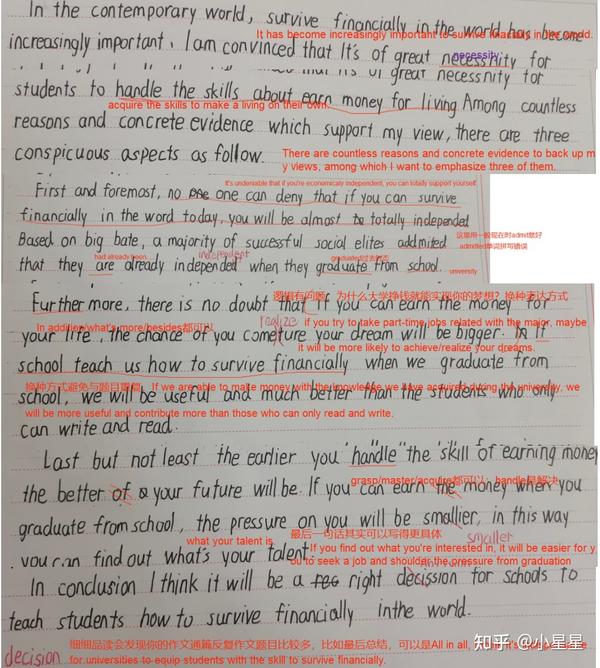 In the contemporary world, survive financially in the world has become
It has become increasingly important to survive financially in the world.
increasingly important. I am convinced that It's of great necessnity for
necessity
great necessnity for
students to handle the skills about earn money for living Among countless
acquire the skills to make a living on their own.
reasons and concrete evidence which support my view, there are three
conspicuous aspects as follow.
There are countless reasons and concrete evidence to back up m
y views, among which I want to emphasize three of them.
It's undeniable that if you're economicaly independent, you can totally support yourself
First and foremost, no one can deny that if you can survive
financially in the word today, you will be almost totally independed
这里用一般现在时admit就好
Based on big bate, a majority of successful social elites addmited
admitted单词拼写错误
had already been
independent
graduated过去时态
that they are already independed when they graduate from school.
university
逻辑有问题,为什么大学挣钱就能实现你的梦想?换种表达方式
Further more, there is no doubt that if you can earn the money for
In addition/what's more/besides都可以
realize
if you try to take part-time jobs related with the major, maybe
your life, the chance of you cometure your dream will be bigger. In If
it will be more likely to achieve/realize your dreams.
school teach us how to survive financially when we graduate from
换种方式避免与题目重复
If we are able to make money with the knowledge we have acquired during the university, we
school, we will be useful and much better than the students who only
will be more useful and contribute more than those who can only read and write.
can write and read.
Last but not least the earlier you "handle" the skill of earning money
grasp/master/acquire都可以,handle是解决
the better of your future will be. If you can earn the money when you
graduate from school, the pressure on you will be smallier, in this way
what your talent is
最后一句话其实可以写得更具体
smaller
you can find out what's your talent.
If you find out what you're interested in, it will be easier for y
ou to seek a job and shoulder the pressure from graduation
In conclusion I think it will be a right decission for schools to
teach students how to survive financially inthe world.
decision
细细品读会发现你的作文通篇反复作文题目比较多,比如最后总结,可以是All in all,
for universities to equip students with the skill to survive financially.
知乎 @小星星